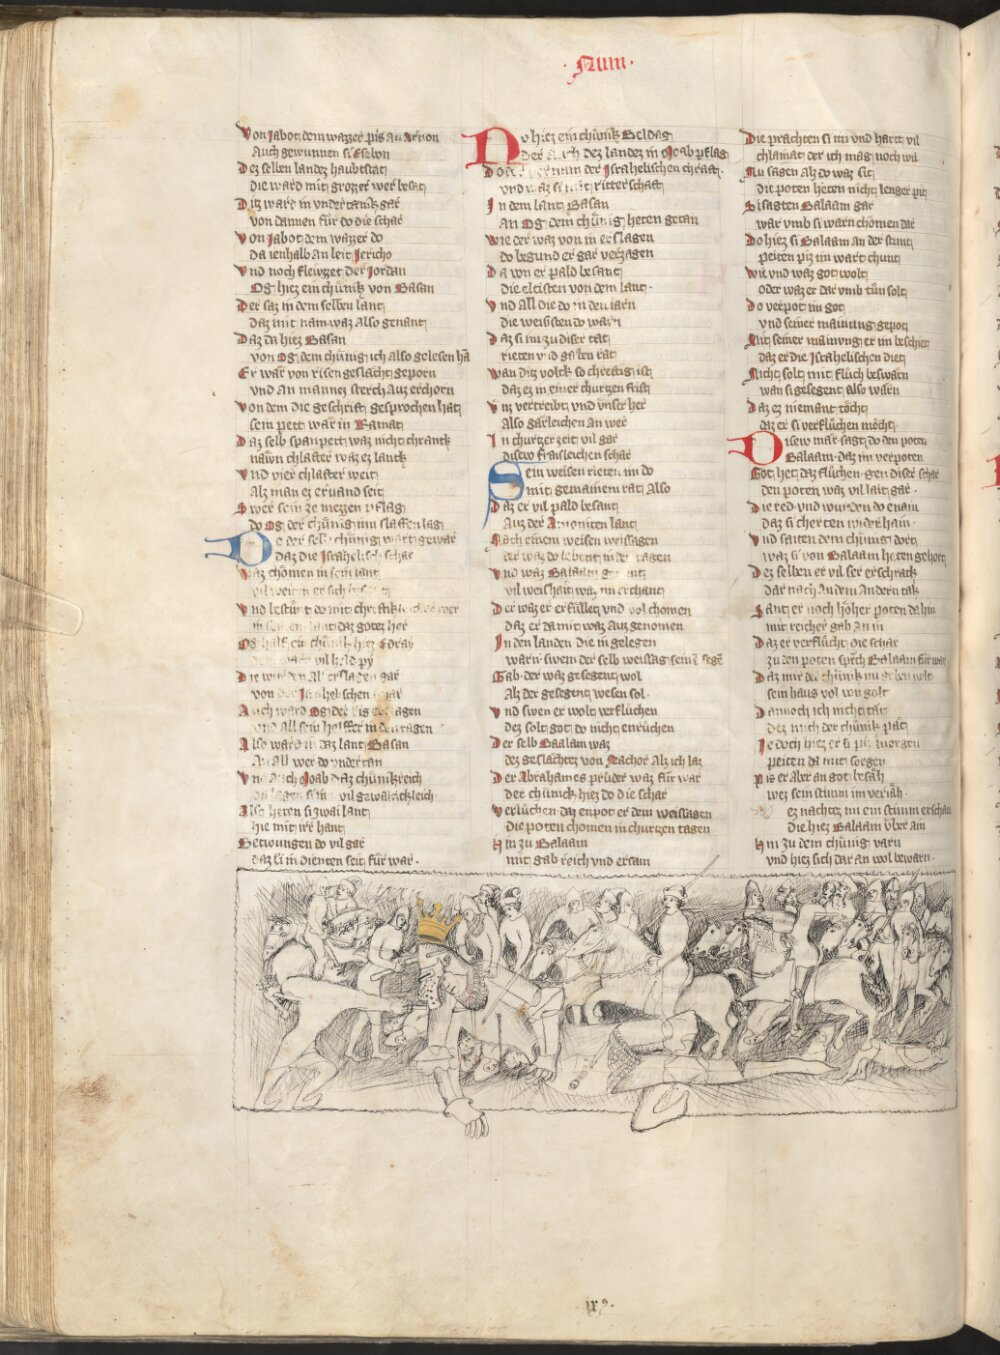 · Num ·
Von Jabot dem wazzer pis an Arnon
Auch gewunnen si Esebon
Dez selben landez haubtstat
die ward mit grozzer wer besat
Ditz ward in vndertanik gar
von dannen fur do die schar
Von Jabot dem wazzer do
da ienhalb an leit Jericho
Vnd noch flewzzet der Jordan
Og hiez ein chünik von Basan
Der saz in dem selben lant
daz mit nam waz also genant
Daz da hiez Basan
von Og dem chünig ich also gelesen han
Er war von risen geslächt geporn
vnd an mannez sterch auz erchorn
Von dem die geschrift gesprochen hat
sein pett wär in Ramat
Daz selb spanpett waz nicht chrank
näwn chlafter waz ez lank
Vnd vier chlafter weit
Alz man ez ervand seit
Swer sein ze mezzen pflag
do Og der chünig inn slaffen lag
Do der selb chünig wart gewar
daz die Israhelisch schar
Waz chomen in sein lant
Vnd bestürt do mit
daz gotez her
Og half ein chünik hiez
vil held py
Die wurden all erslagen gar
von der Israhelischen schar
Auch ward Og der ris erslagen
vnd all sein helffer in den tagen
Also ward in daz lant Basan
An all wer do vndertan
Vnd auch Moab daz chünikreich
vil gewaltichleich
Also heten si zwai lant
hie mit irr hant
Betwungen do vil gar
daz si in dienten seit für war ·
Do hiez ein chünik Beldag
Der dez landez in Moab pflag
Do der vernam der Israhelischen chraft ·
vnd waz si mit ritterschaft
In dem lant Basan
An Og dem chünig heten getan
Wie der waz von in erslagen
do begund er gar verzagen
Da von er pald besant
die eltisten von dem lant ·
Vnd all die do in den iarn
die weisisten do warn
Daz si im zu diser tat
rieten vnd gäben rat
Wan ditz volck so chreftig ist
daz ez in einer churtzen frist
Vns vertreibt vnd vnser her
Also gärleichen an wer
In churtzer zeit vil gar
disew fraisleichen schar
Sein weisen rieten im do
mit gemainem rat also
Daz er vil pald besant
Auz der Amoniten lant
Nach einem weisen weissagen
der waz do lebent in den tagen
Vnd waz Balaam genant
vil weishait waz im erchant
Der waz er erfüllet vnd vol chomen
daz er da mit waz auz genomen
In den landen die im gelegen
warn· swem der selb weissag seinen segen
Gab· der waz gesegent wol
Alz der gesegent wesen sol ·
Vnd swen er wolt verflüchen
dez solt got do nicht enrüchen
Der selb Baalam waz
dez geslächtez von Nachor alz ich laz
Der Abrahames prüder waz für war
der chünik hiez do die schar
Verlüchen daz enpot er dem weissagen
die poten chomen in churtzen tagen
Hin zu Balaam
mit gab reich vnd ersam
Die prächten si im vnd hartt vil
chlainat der ich mag noch wil
Nu sagen alz do waz sit
die poten heten nicht lenger pit
Si sagten Balaam gar
war vmb si warn chomen dar
Do hiez si Balaam an der stunt
peiten piz im wart chunt
Wie vnd waz got wolt
oder waz er dar vmb tün solt
Do verpot im got
vnd seiner mainung gepot
Mit seiner mainung er im beschiet
daz er die Israhelischen diet
Nicht solt mit fluch beswärn
wan si gesegent also wärn
Daz ez niemant töcht
daz er si verflüchen möcht ·
Disew mär sagt do den poten
Balaam· daz im verpoten
Got het daz flüchen· gen diser schar
den poten waz vil lait gar ·
Die red· vnd wurden do enain
daz si cherten wider hain ·
Vnd saiten dem chünig dort
waz si von Balaam heten gehort
Dez selben er vil ser erschrack
dar nach an dem andern tak
Sant er noch höher poten da hin
mit reicher gab an in
Daz er verflücht die schar
zu den poten sprach Balaam für war
Daz mir der chünik nu geben wolt
sein haus vol von golt
Dannoch ich nicht tät
dez mich der chünik pät
Je doch hiez er si piz morgen
peiten da mit sorgen
Pis er aber an got besäh
wez sein stimm im veriäh ·
ez nachtez im ein stimm erschain
die hiez Balaam vber ain
Hin zu dem chünig varn
vnd hiez sich dar an wol bewarn ·
ix⁹ ·